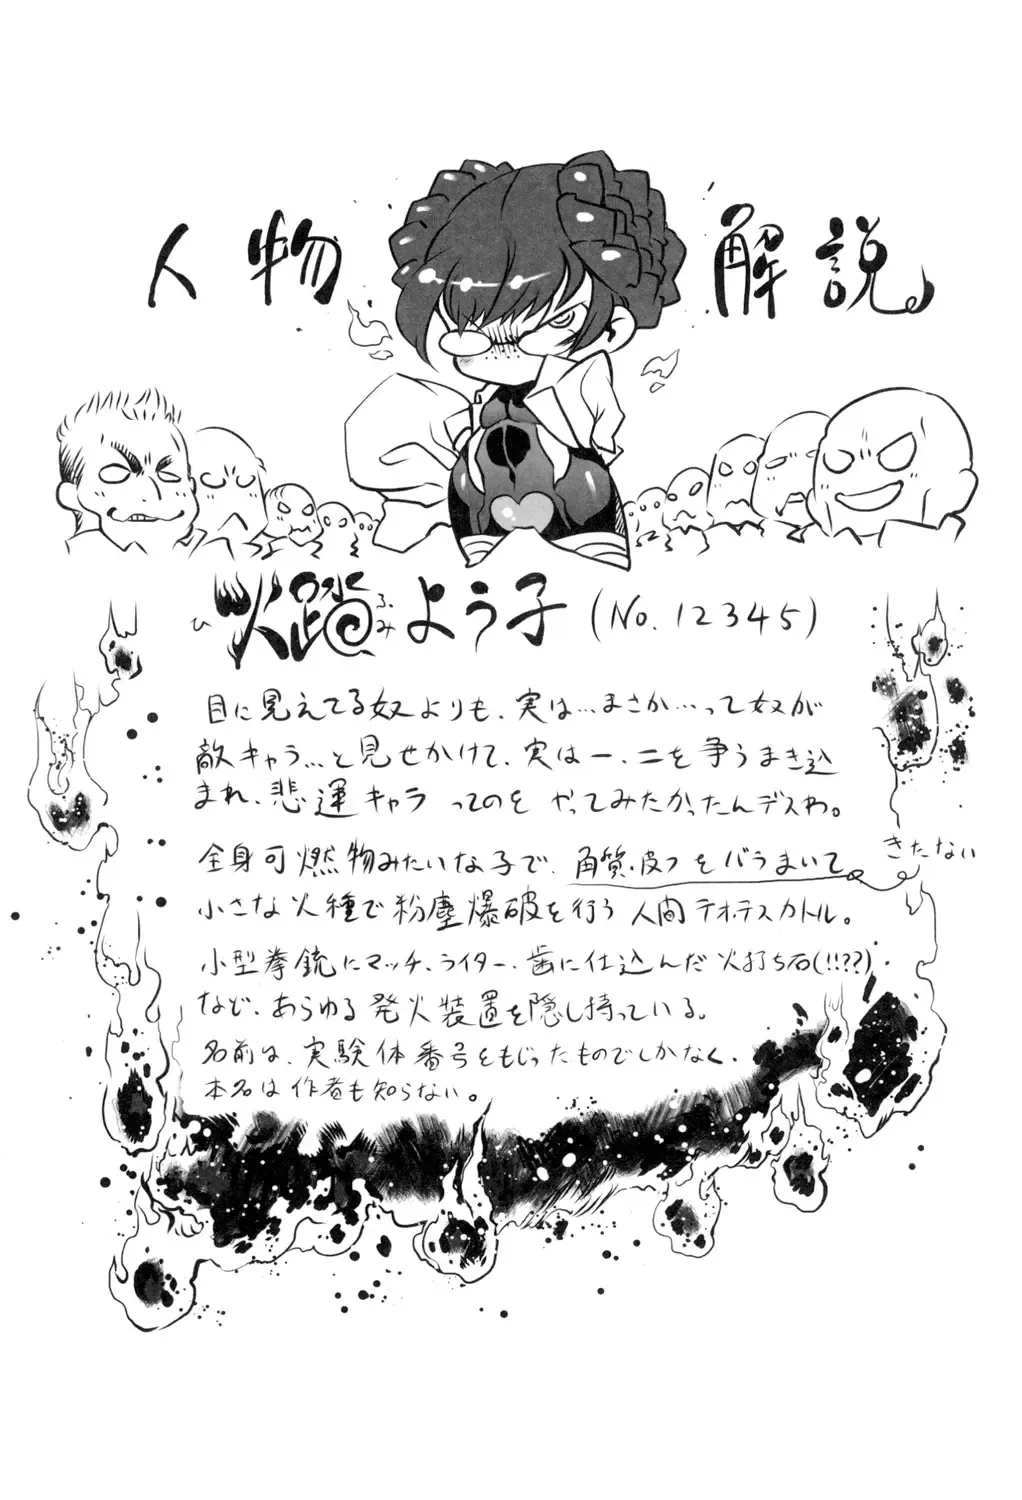 人物解説
火踏よう子(No.12345)
ひ
ふみ
目に見えてる奴よりも、実は…まさか…って奴が
敵キャラ…と見せかけて、実は一、二を争うまき込
まれ、悲運キャラってのをやってみたかったんデスわ。
全身可燃物みたいな子で、角質・皮フをバラまいて
きたない
小さな火種で粉塵爆破を行う人間テオ・テスカトル。
小型拳銃にマッチ、ライター、歯に仕込んだ火打ち石(!!??)
など、あらゆる発火装置を隠し持っている。
名前は、実験体番号をもじったものでしかなく、
本名は作者も知らない。